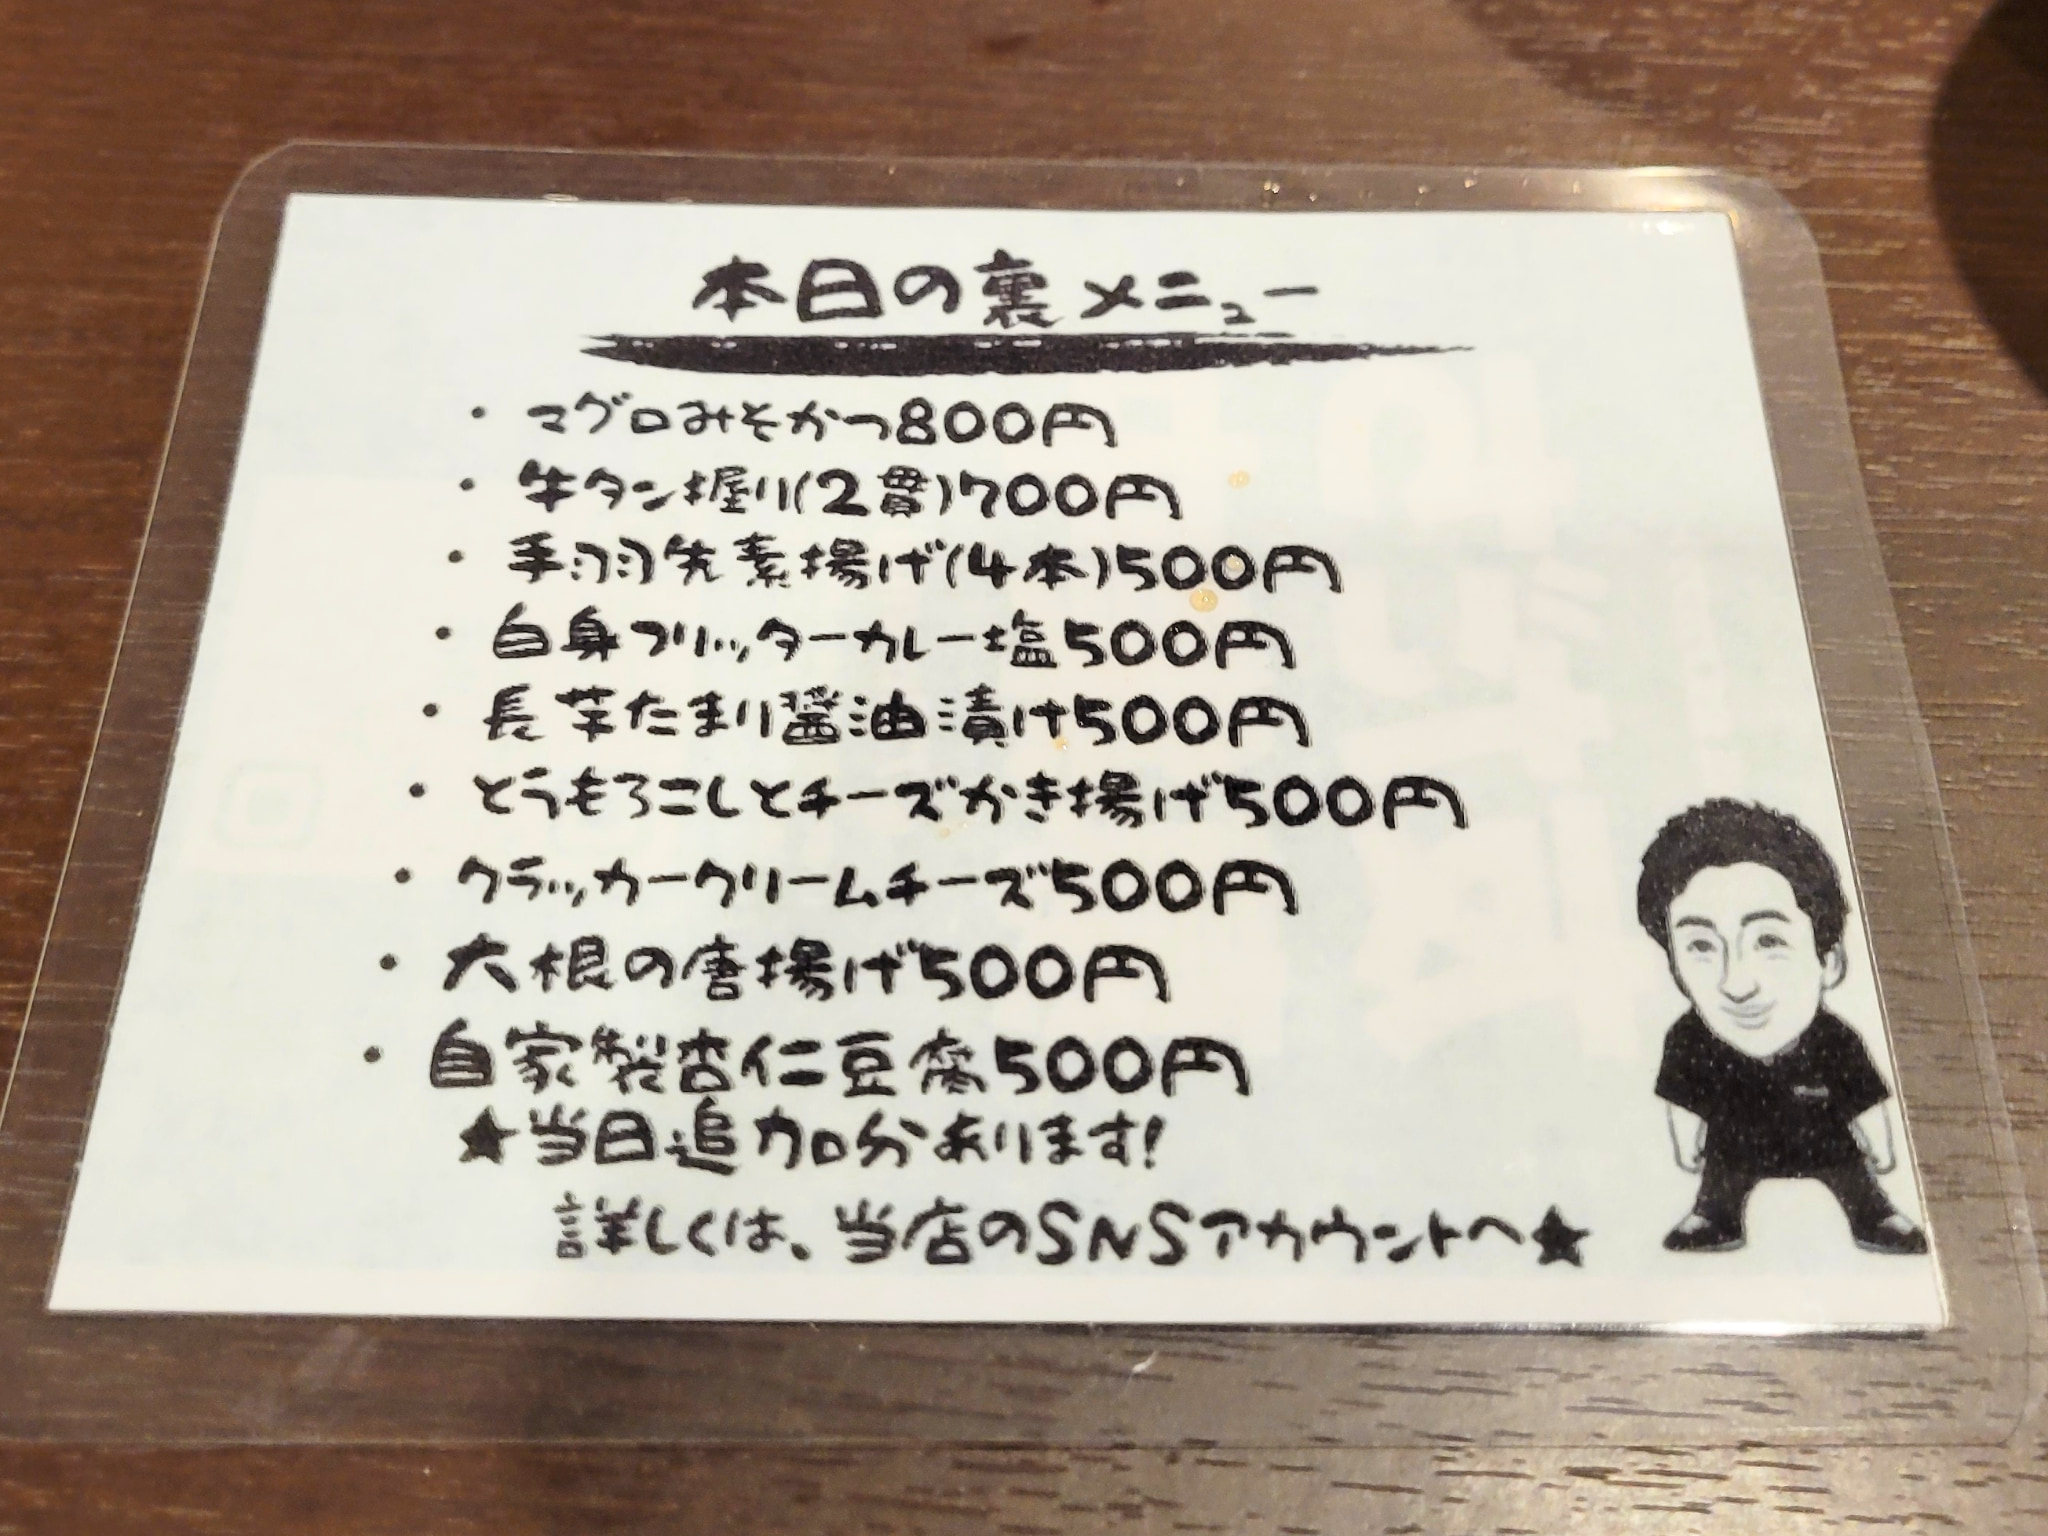 本日の裏メニュー
・マグロみそかつ800円
・牛タン握り(2貫)700円
・手羽先素揚げ(4本)500円
・白身フリッターカレー塩500円
・長芋たまり醤油漬け500円
・とうもろこしとチーズかき揚げ500円
・クラッカークリームチーズ500円
・大根の唐揚げ500円
・自家製杏仁豆腐500円
★当日追加分あります!
詳しくは、当店のSNSアカウントへ★